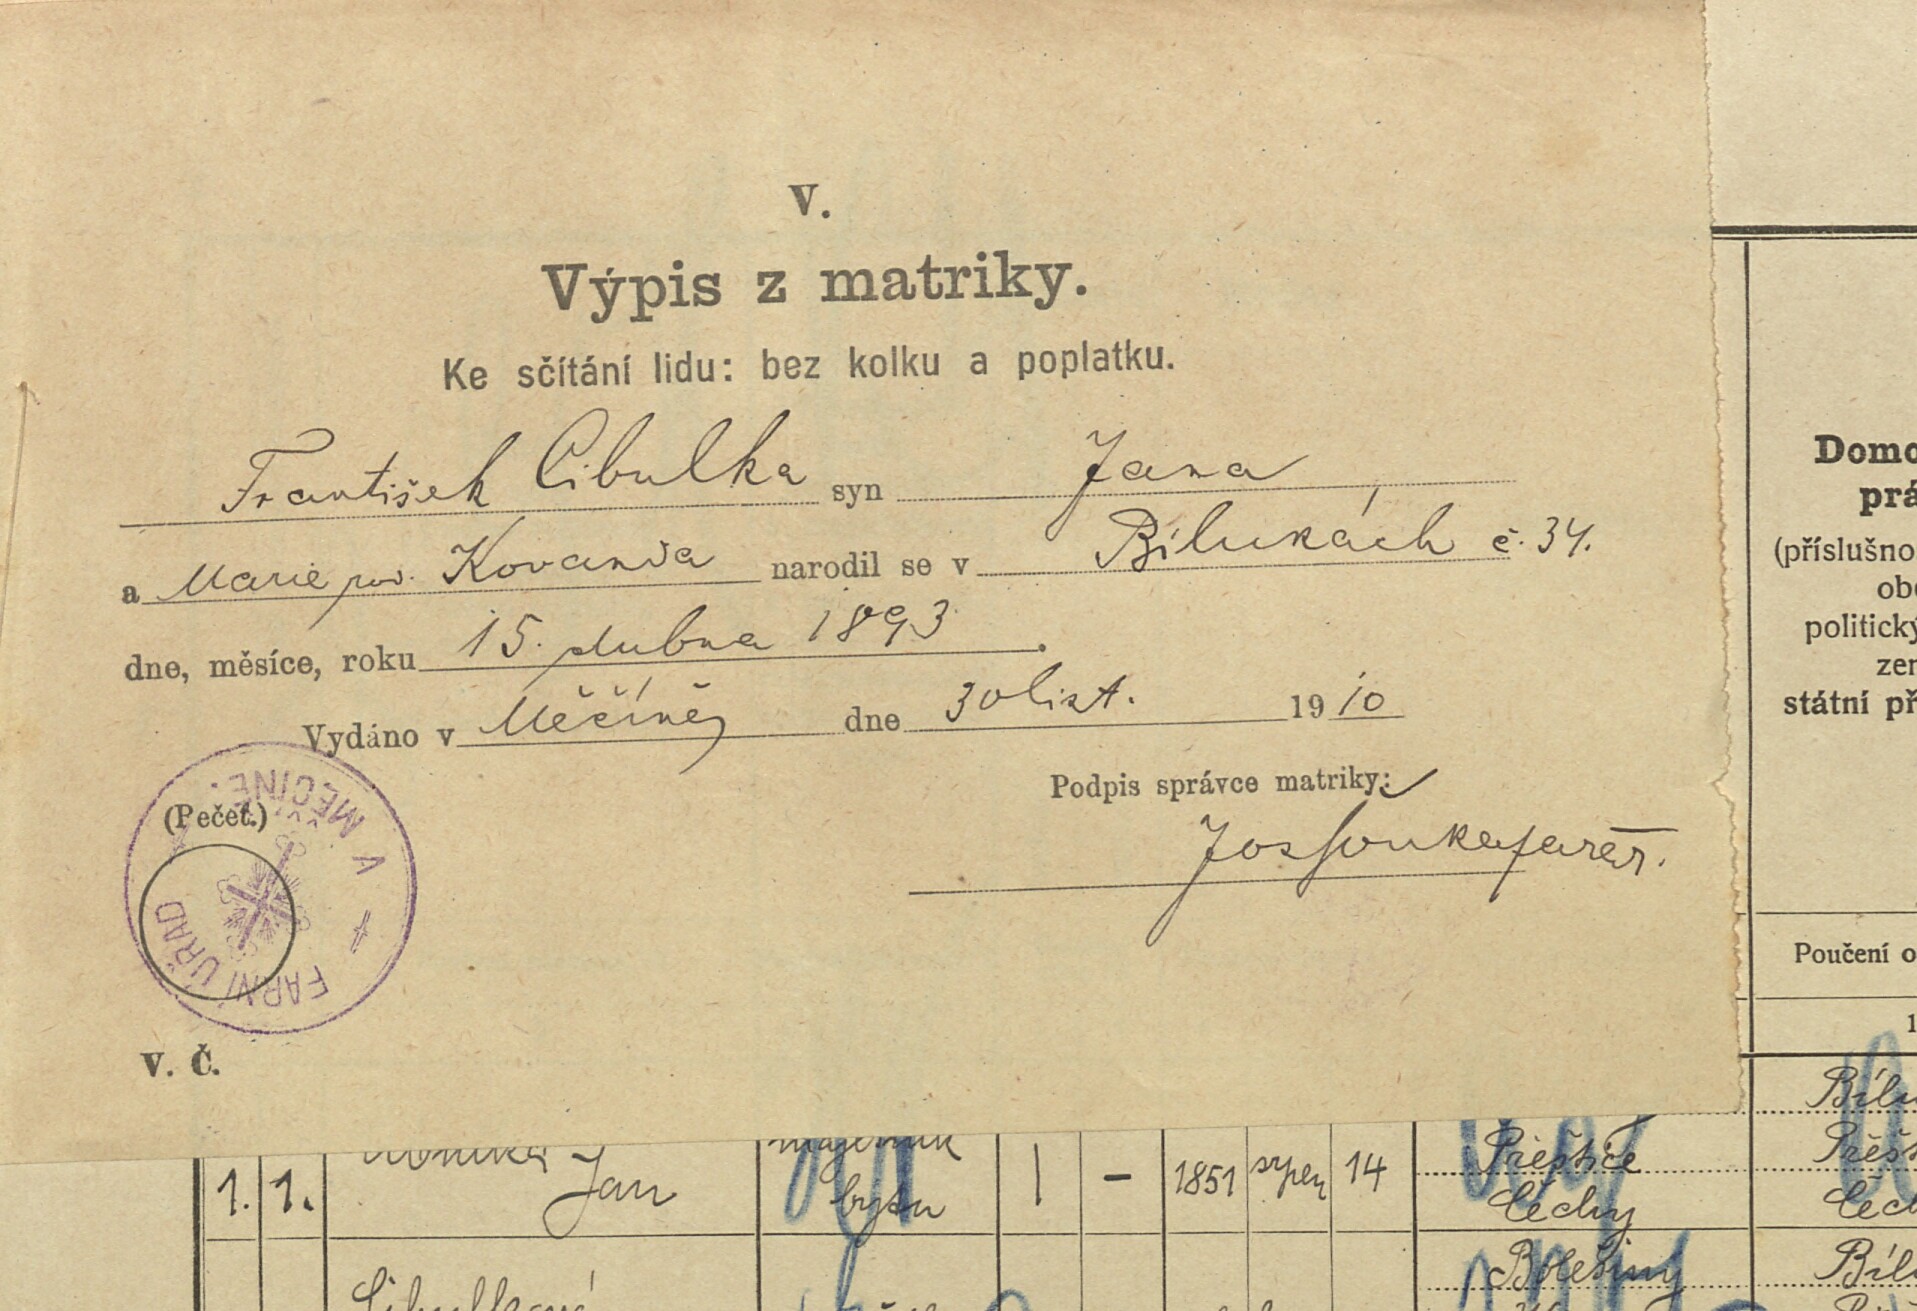 V.
Výpis z matriky.
Ke sčítání lidu: bez kolku a poplatku.
František Cibulka syn Jana
a Marie roz. Kovanda narodil se v Bílukách č. 34.
dne, měsíce, roku 15. dubna 1893.
Vydáno v Měčíně dne 30 list. 1910
Podpis správce matriky:
(Pečeť.)
FARNÍ ÚŘAD
V MĚČÍNĚ.
Jos Souka farář.
V. Č.
Domo
prá
(příslušno
obc
politický
zem
státní př
Poučení o
1
Bílu
1. 1. Jan bytu 1 – 1851 srpen 14 Přeštice Přešt
Čechy Čech
Cibulková Bolešiny Bílu